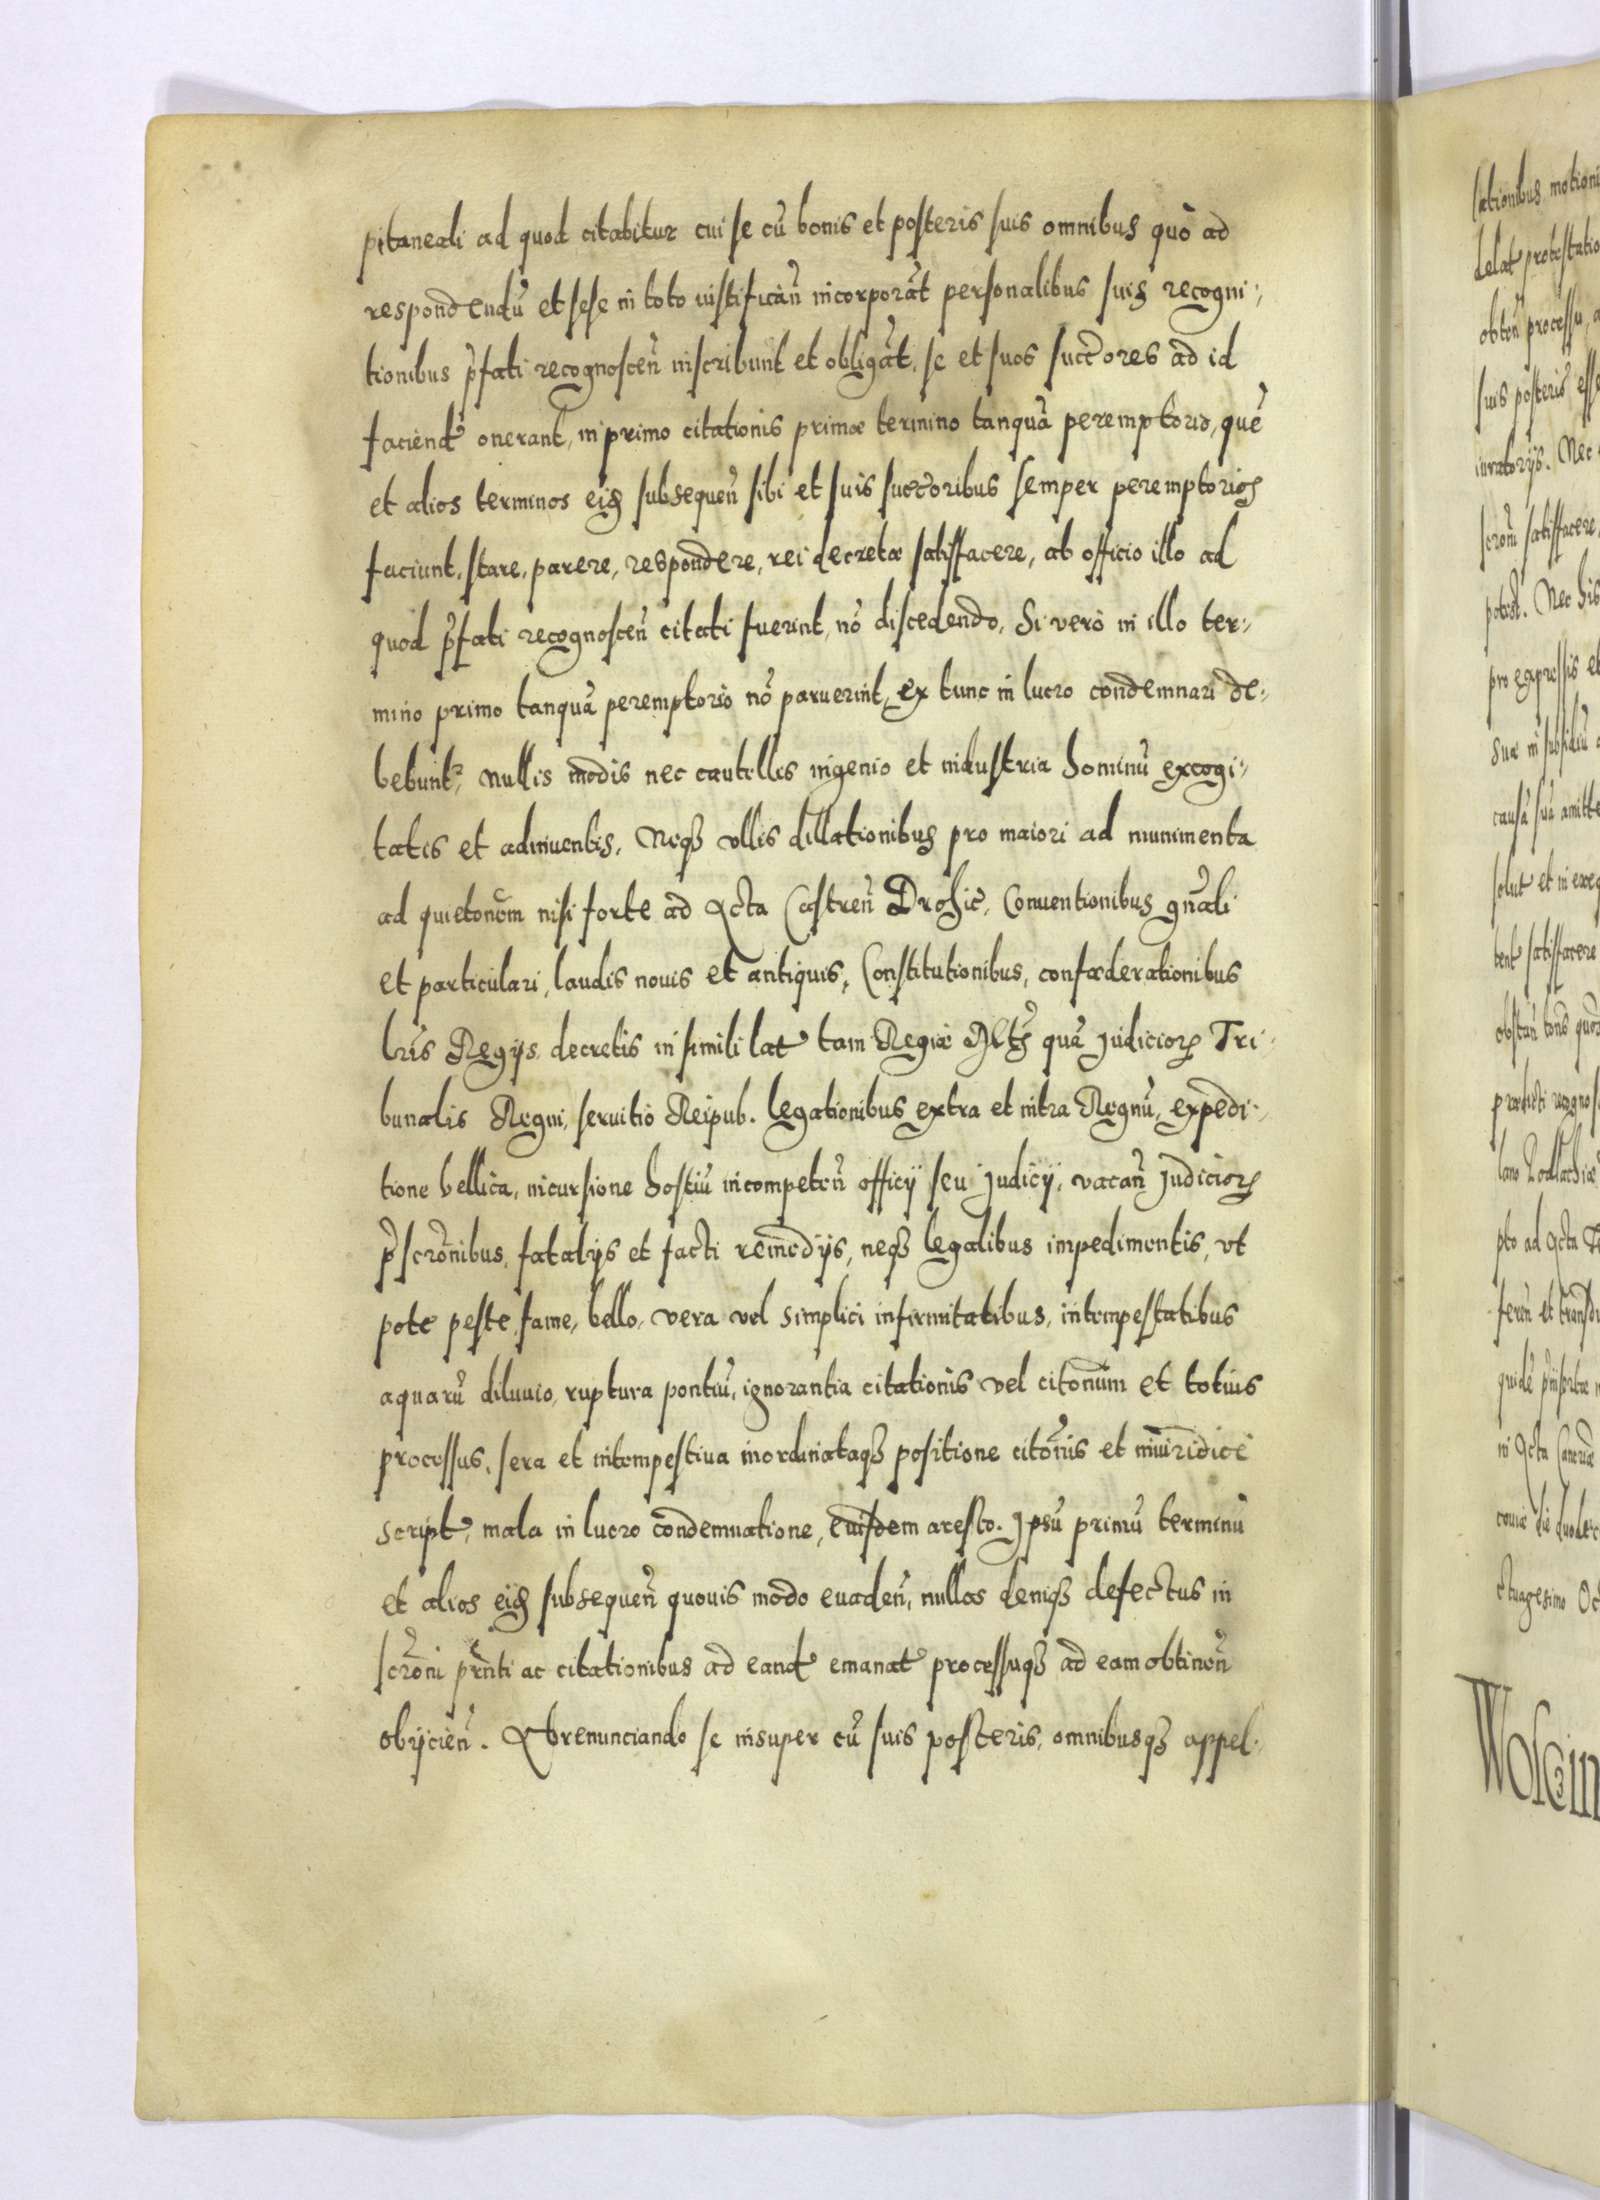 pitaneali ad quod citabitur cui se cū bonis et posteris suis omnibus quò ad
respondendū et sese in toto iustificañ incorporāt personalibus suis recogni-
tionibus p̄fati recognosceñ inscribunt et obligāt, se et suos succ̄ores ad id
faciend onerant, in primo citationis primæ termino tanquā peremptorio, quē
et alios terminos eis subsequeñ sibi et suis succ̄oribus semper peremptorios
faciunt, stare, parere, respondere, rei decretæ satisfacere, ab officio illo ad
quod p̄fati recognosceñ citati fuerint, nō discedendo, Si verò in illo ter-
mino primo tanquā peremptorio nō paruerint, ex tunc in lucro condemnari de-
bebunt, nullis modis nec cautellis ingenio et industria hominū excogi-
tatis et adinuentis, Neqȝ vllis dillationibus pro maiori ad munimenta
ad quietoñem nisi forte ad Acta Castreñ Drohic, Conuentionibus gñali
et particulari, laudis nouis et antiquis, Constitutionibus, confæderationibus
lr̄is Regijs decretis in simili lat tam Regiæ Mtis quā judiciorꝝ Tri-
bunalis Regni, seruitio Reipub. legationibus extra et intra Regnū, expedi-
tione bellica, incursione hostiū incompeteñ officij seu judicij, vacañ judiciorꝝ
p̄scr̄onibus, fatalijs et facti remedijs, neqȝ legalibus impedimentis, vt
pote peste, fame, bello, vera vel simplici infirmitatibus, intempestatibus
aquarū diluuio, ruptura pontiū, ignorantia citationis vel citonum et totius
processus, sera et intempestiua inordinataqȝ positione citōnis et iniuridicè
script, mala in lucro condemnatione, eiusdem aresto. Ipsū primū terminū
et alios eis subsequeñ quouis modo euadeñ, nullos deniqȝ defectus in
scr̄oni pr̄nti ac citationibus ad eand emanat processuqȝ ad eam obtineñ
obijcieñ. Abrenunciando se insuper cū suis posteris, omnibusqȝ appel-
lationibus motioni
delat protestatio
obteñ processu, a
suis posteris esse
iuratorijs. Nec
scr̄oni satisfacere,
potest. Nec his
pro expressis et
suæ in subsidiū
causā suā amitte
solut et in exeq
tent satisfacere
obstañ tons quod
prædicti recognos
pto ad Acta
fereñ et transdu
quidē p̄insertæ
in Acta Cancellariæ
die duodec
ctuagesimo Oct